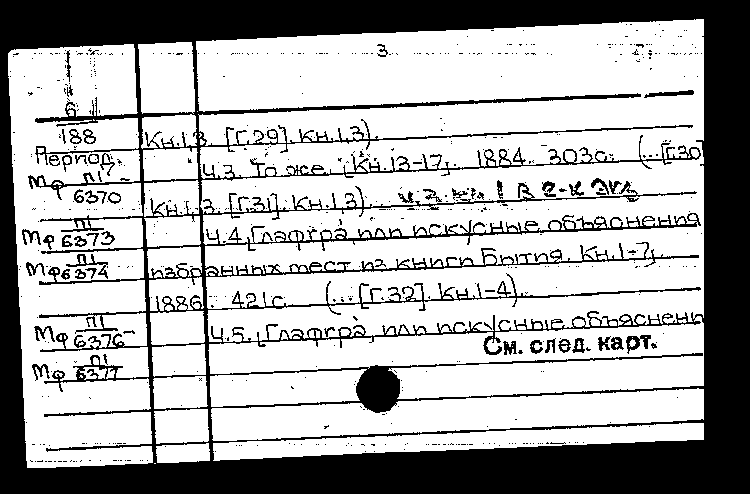 3
6
188
Период.
Кн.1,3. [Г.29]. Кн.1,3).
Ч.3. То же. [Кн.13-17]. 1884. 303с. (...[Г.30]
Мф П1
6370
Кн.1,3. [Г.31]. Кн.1,3). Ч.3. кн. 1 в 2-х экз
Мф П1
6373
Ч.4. [Глафѵра, или искусные объяснения
Мф П1
6374
избранных мест из книги Бытия. Кн.1-7].
1886. 421с. (...[Г.32]. Кн.1-4).
Мф П1
6376-
Ч.5. [Глафѵра, или искусные объяснень
См. след. карт.
Мф П1
6377